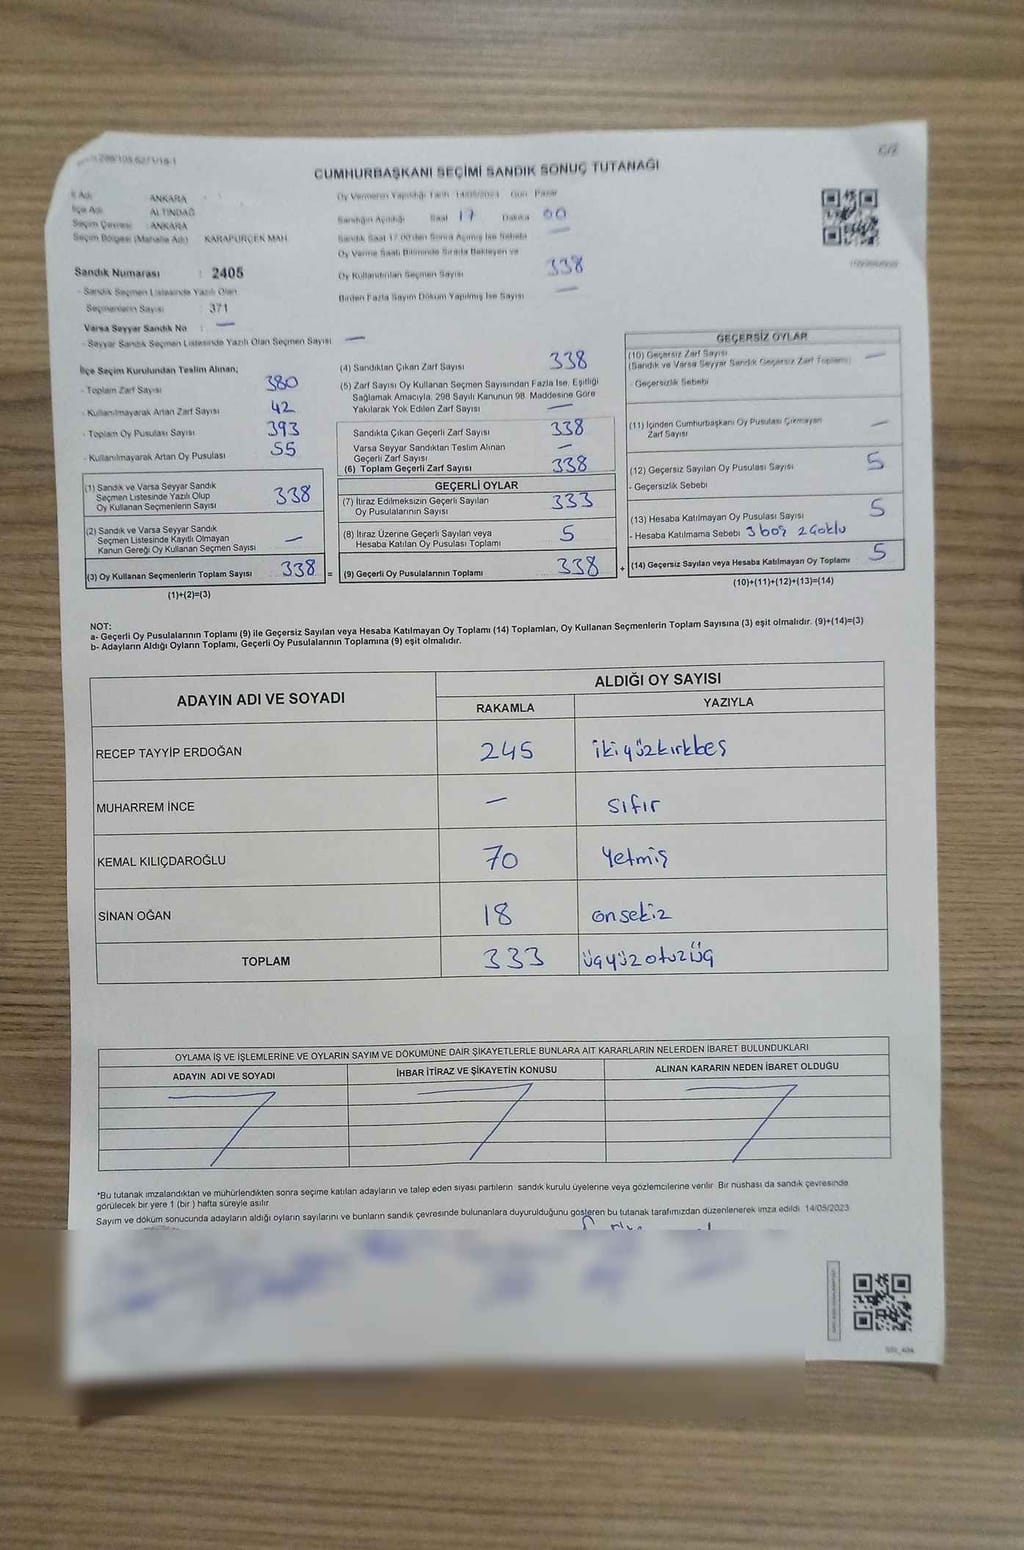 CUMHURBAŞKANI SEÇİMİ SANDIK SONUÇ TUTANAĞI
İl Adı : ANKARA
İlçe Adı : ALTINDAĞ
Seçim Çevresi : ANKARA
Seçim Bölgesi (Mahalle Adı) KARAPÜRÇEK MAH
Sandık Numarası : 2405
- Sandık Seçmen Listesinde Yazılı Olan
Seçmenlerin Sayısı : 371
Varsa Seyyar Sandık No : —
- Seyyar Sandık Seçmen Listesinde Yazılı Olan Seçmen Sayısı —
Oy Vermenin Yapıldığı Tarih 14/05/2023 Gün Pazar
Sandığın Açıldığı Saat 17 Dakika 00
Sandık Saat 17.00'den Sonra Açılmış İse Sebebi —
Oy Verme Saati Bitiminde Sırada Bekleyen ve
Oy Kullandırılan Seçmen Sayısı 338
Birden Fazla Sayım Döküm Yapılmış İse Sayısı —
İlçe Seçim Kurulundan Teslim Alınan;
- Toplam Zarf Sayısı 380
- Kullanılmayarak Artan Zarf Sayısı 42
- Toplam Oy Pusulası Sayısı 393
- Kullanılmayarak Artan Oy Pusulası 55
(1) Sandık ve Varsa Seyyar Sandık
Seçmen Listesinde Yazılı Olup
Oy Kullanan Seçmenlerin Sayısı 338
(2) Sandık ve Varsa Seyyar Sandık
Seçmen Listesinde Kayıtlı Olmayan
Kanun Gereği Oy Kullanan Seçmen Sayısı —
(3) Oy Kullanan Seçmenlerin Toplam Sayısı 338 =
(1)+(2)=(3)
(4) Sandıktan Çıkan Zarf Sayısı 338
(5) Zarf Sayısı Oy Kullanan Seçmen Sayısından Fazla İse, Eşitliği
Sağlamak Amacıyla, 298 Sayılı Kanunun 98. Maddesine Göre
Yakılarak Yok Edilen Zarf Sayısı —
Sandıkta Çıkan Geçerli Zarf Sayısı 338
Varsa Seyyar Sandıktan Teslim Alınan
Geçerli Zarf Sayısı —
(6) Toplam Geçerli Zarf Sayısı 338
GEÇERLİ OYLAR
(7) İtiraz Edilmeksizin Geçerli Sayılan
Oy Pusulalarının Sayısı 333
(8) İtiraz Üzerine Geçerli Sayılan veya
Hesaba Katılan Oy Pusulası Toplamı 5
(9) Geçerli Oy Pusulalarının Toplamı 338 +
GEÇERSİZ OYLAR
(10) Geçersiz Zarf Sayısı —
(Sandık ve Varsa Seyyar Sandık Geçersiz Zarf Toplamı)
- Geçersizlik Sebebi
(11) İçinden Cumhurbaşkanı Oy Pusulası Çıkmayan
Zarf Sayısı —
(12) Geçersiz Sayılan Oy Pusulası Sayısı 5
- Geçersizlik Sebebi
(13) Hesaba Katılmayan Oy Pusulası Sayısı 5
- Hesaba Katılmama Sebebi 3 boş 2 çoklu
(14) Geçersiz Sayılan veya Hesaba Katılmayan Oy Toplamı 5
(10)+(11)+(12)+(13)=(14)
NOT:
a- Geçerli Oy Pusulalarının Toplamı (9) ile Geçersiz Sayılan veya Hesaba Katılmayan Oy Toplamı (14) Toplamları, Oy Kullanan Seçmenlerin Toplam Sayısına (3) eşit olmalıdır. (9)+(14)=(3)
b- Adayların Aldığı Oyların Toplamı, Geçerli Oy Pusulalarının Toplamına (9) eşit olmalıdır.
ADAYIN ADI VE SOYADI ALDIĞI OY SAYISI
RAKAMLA YAZIYLA
RECEP TAYYİP ERDOĞAN 245 ikiyüzkırkbeş
MUHARREM İNCE — sıfır
KEMAL KILIÇDAROĞLU 70 Yetmiş
SİNAN OĞAN 18 onsekiz
TOPLAM 333 üçyüzotuzüç
OYLAMA İŞ VE İŞLEMLERİNE VE OYLARIN SAYIM VE DÖKÜMÜNE DAİR ŞİKAYETLERLE BUNLARA AİT KARARLARIN NELERDEN İBARET BULUNDUKLARI
ADAYIN ADI VE SOYADI İHBAR İTİRAZ VE ŞİKAYETİN KONUSU ALINAN KARARIN NEDEN İBARET OLDUĞU
*Bu tutanak imzalandıktan ve mühürlendikten sonra seçime katılan adayların ve talep eden siyasi partilerin sandık kurulu üyelerine veya gözlemcilerine verilir. Bir nüshası da sandık çevresinde
görülecek bir yere 1 (bir) hafta süreyle asılır
Sayım ve döküm sonucunda adayların aldığı oyların sayılarını ve bunların sandık çevresinde bulunanlara duyurulduğunu gösteren bu tutanak tarafımızdan düzenlenerek imza edildi. 14/05/2023